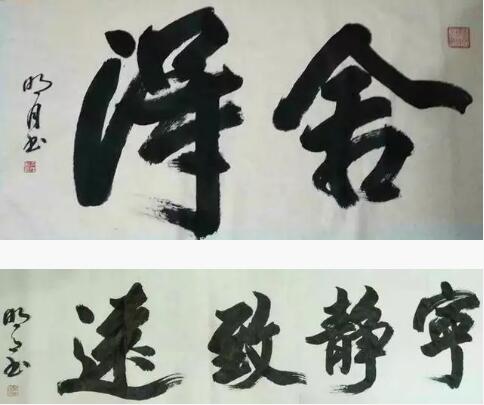 舍得
明月书
寧静致遠
明月书